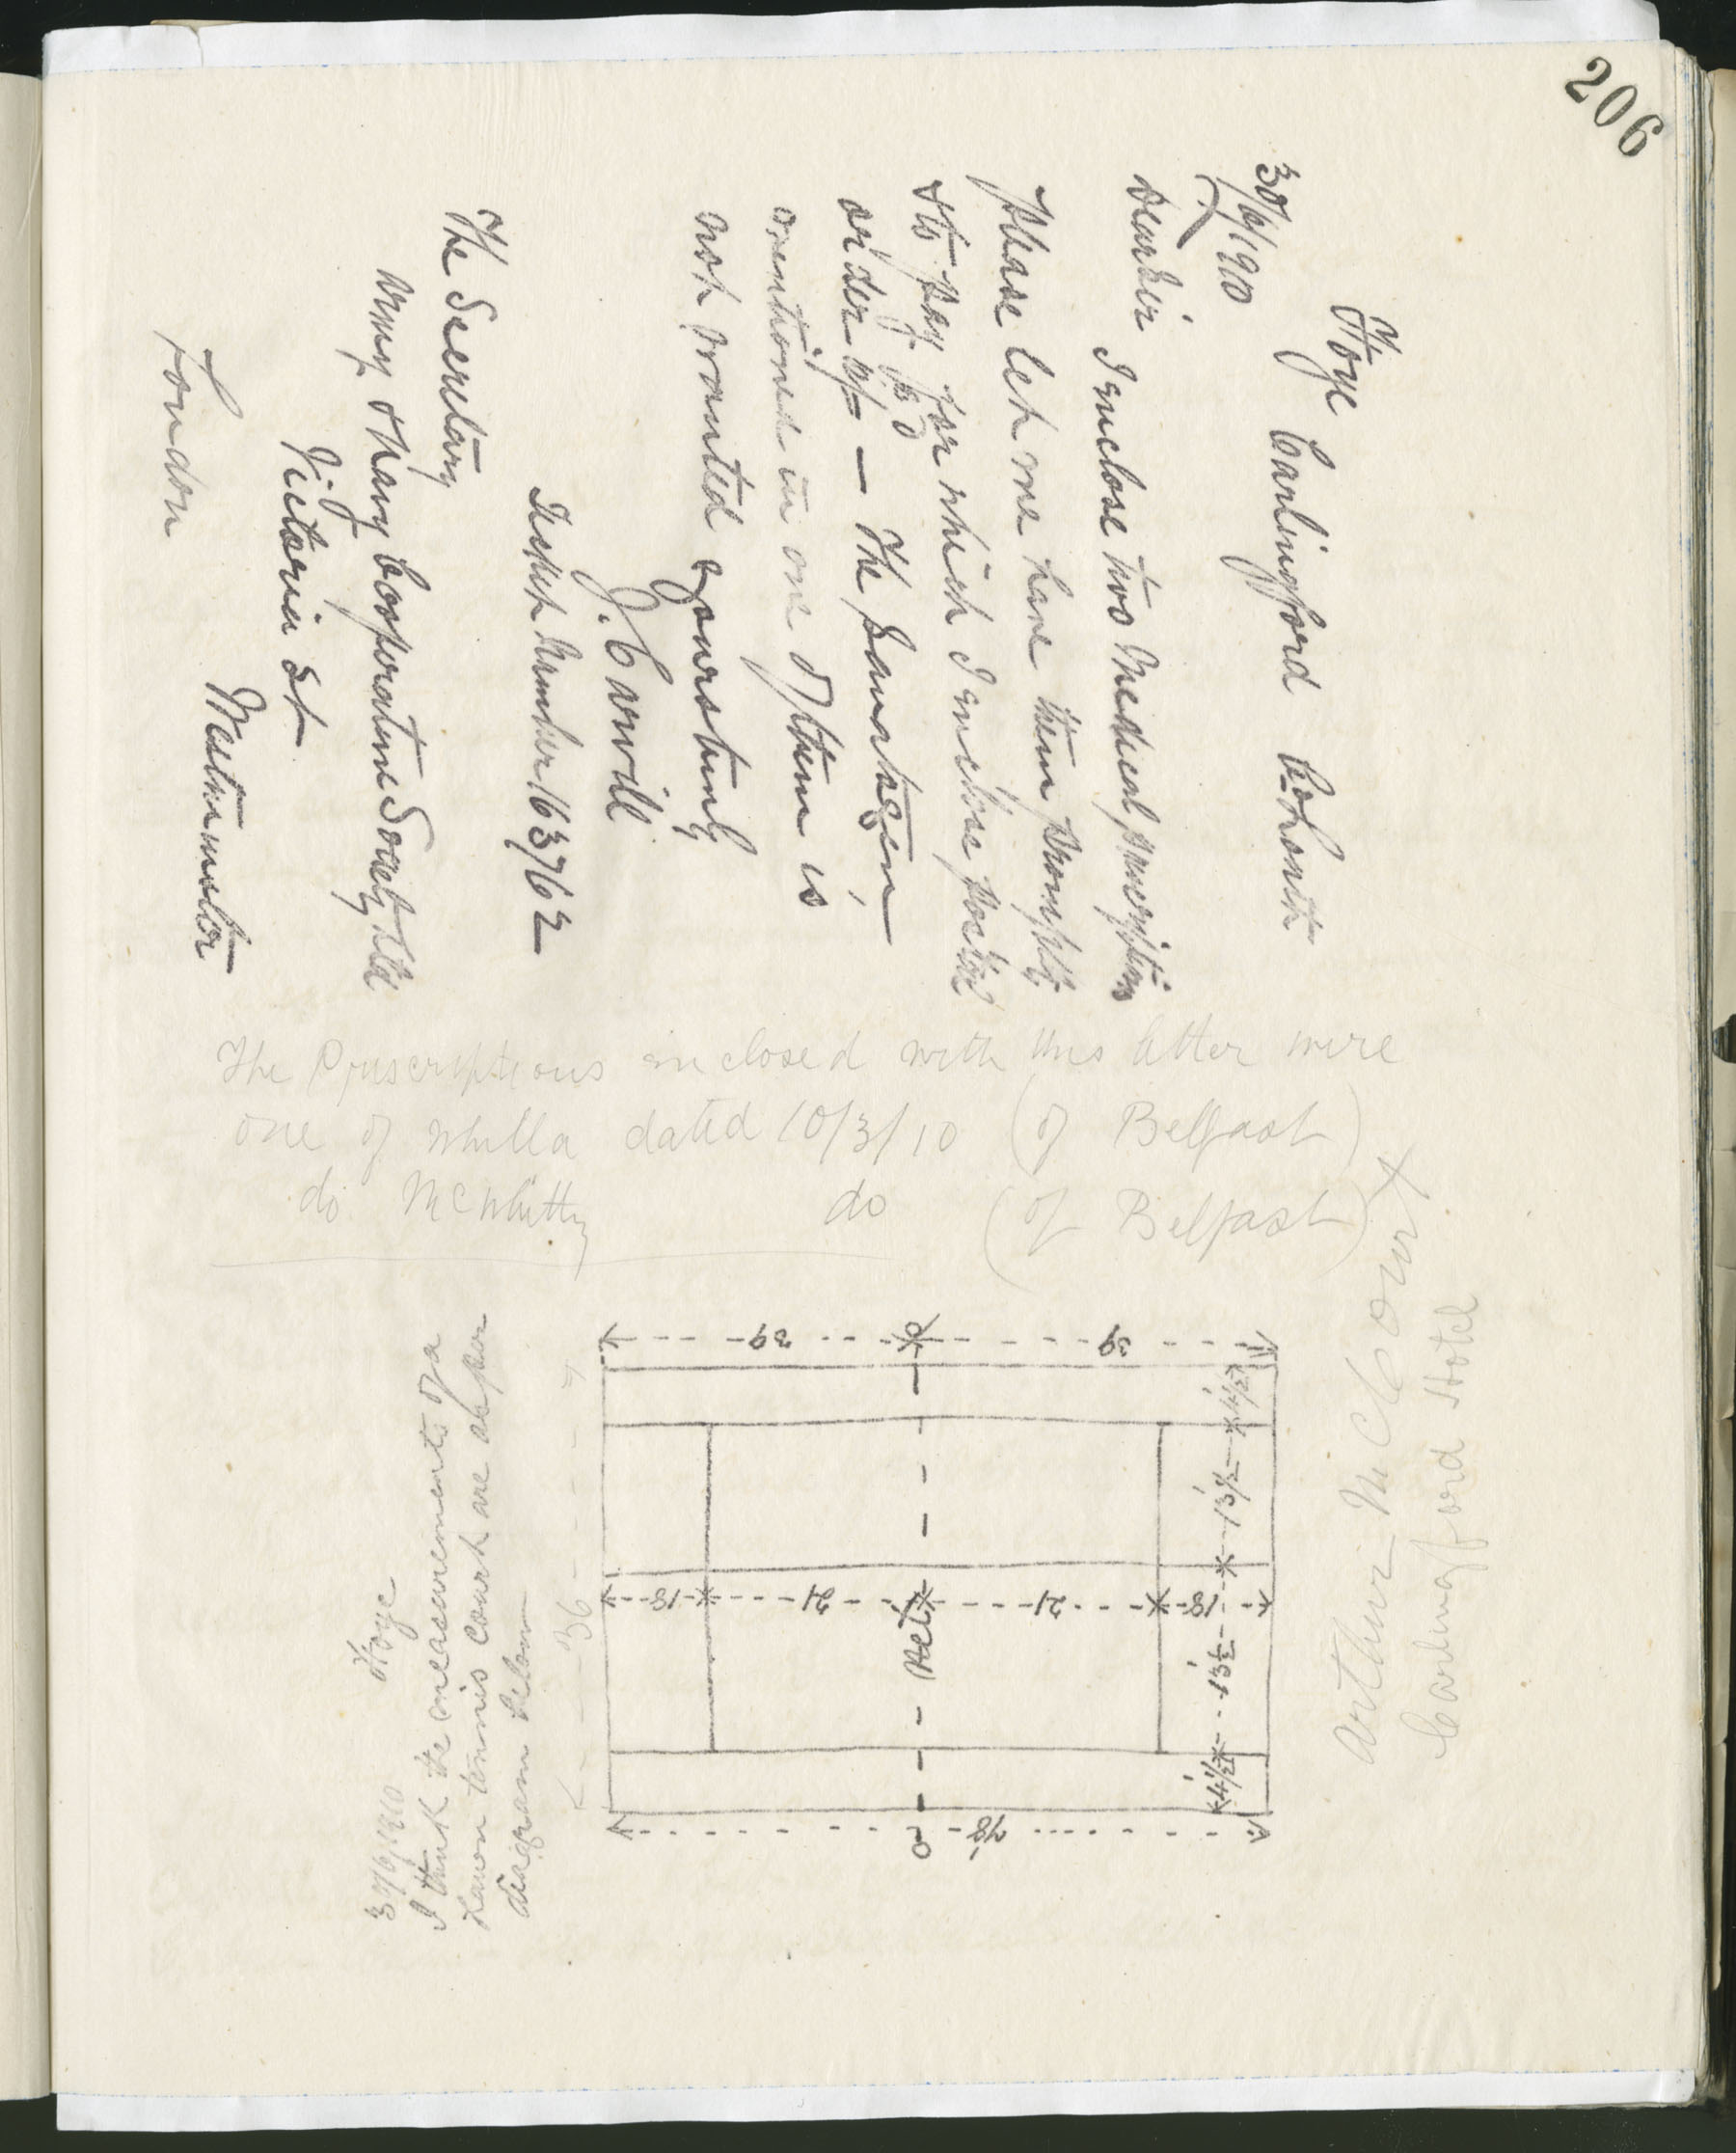 206
Ffoye Carlingford Co Louth
30/6/1910
Dear Sir
I enclose two Medical prescriptions
Please let me have them promptly
& to pay for which I enclose postal
order of — The Sanatogen
mentioned in one of them is
not wanted
Yours truly
J. Carvill
Ticket Number 163762
The Secretary
Army & Navy Cooperative Society Ltd
Victoria St
Westminster
London
The Prescriptions inclosed with this letter were
one of Whitla dated 10/3/10 (of Belfast)
do McWhitty do (of Belfast)
30/6/1910 Ffoye
I think the measurements of a
Lawn tennis court are as per
diagram below
36
39 39
4½ 13½ 13½ 4½
18 21 21 18
Net
78
Arthur McCourt
Carlingford Hotel